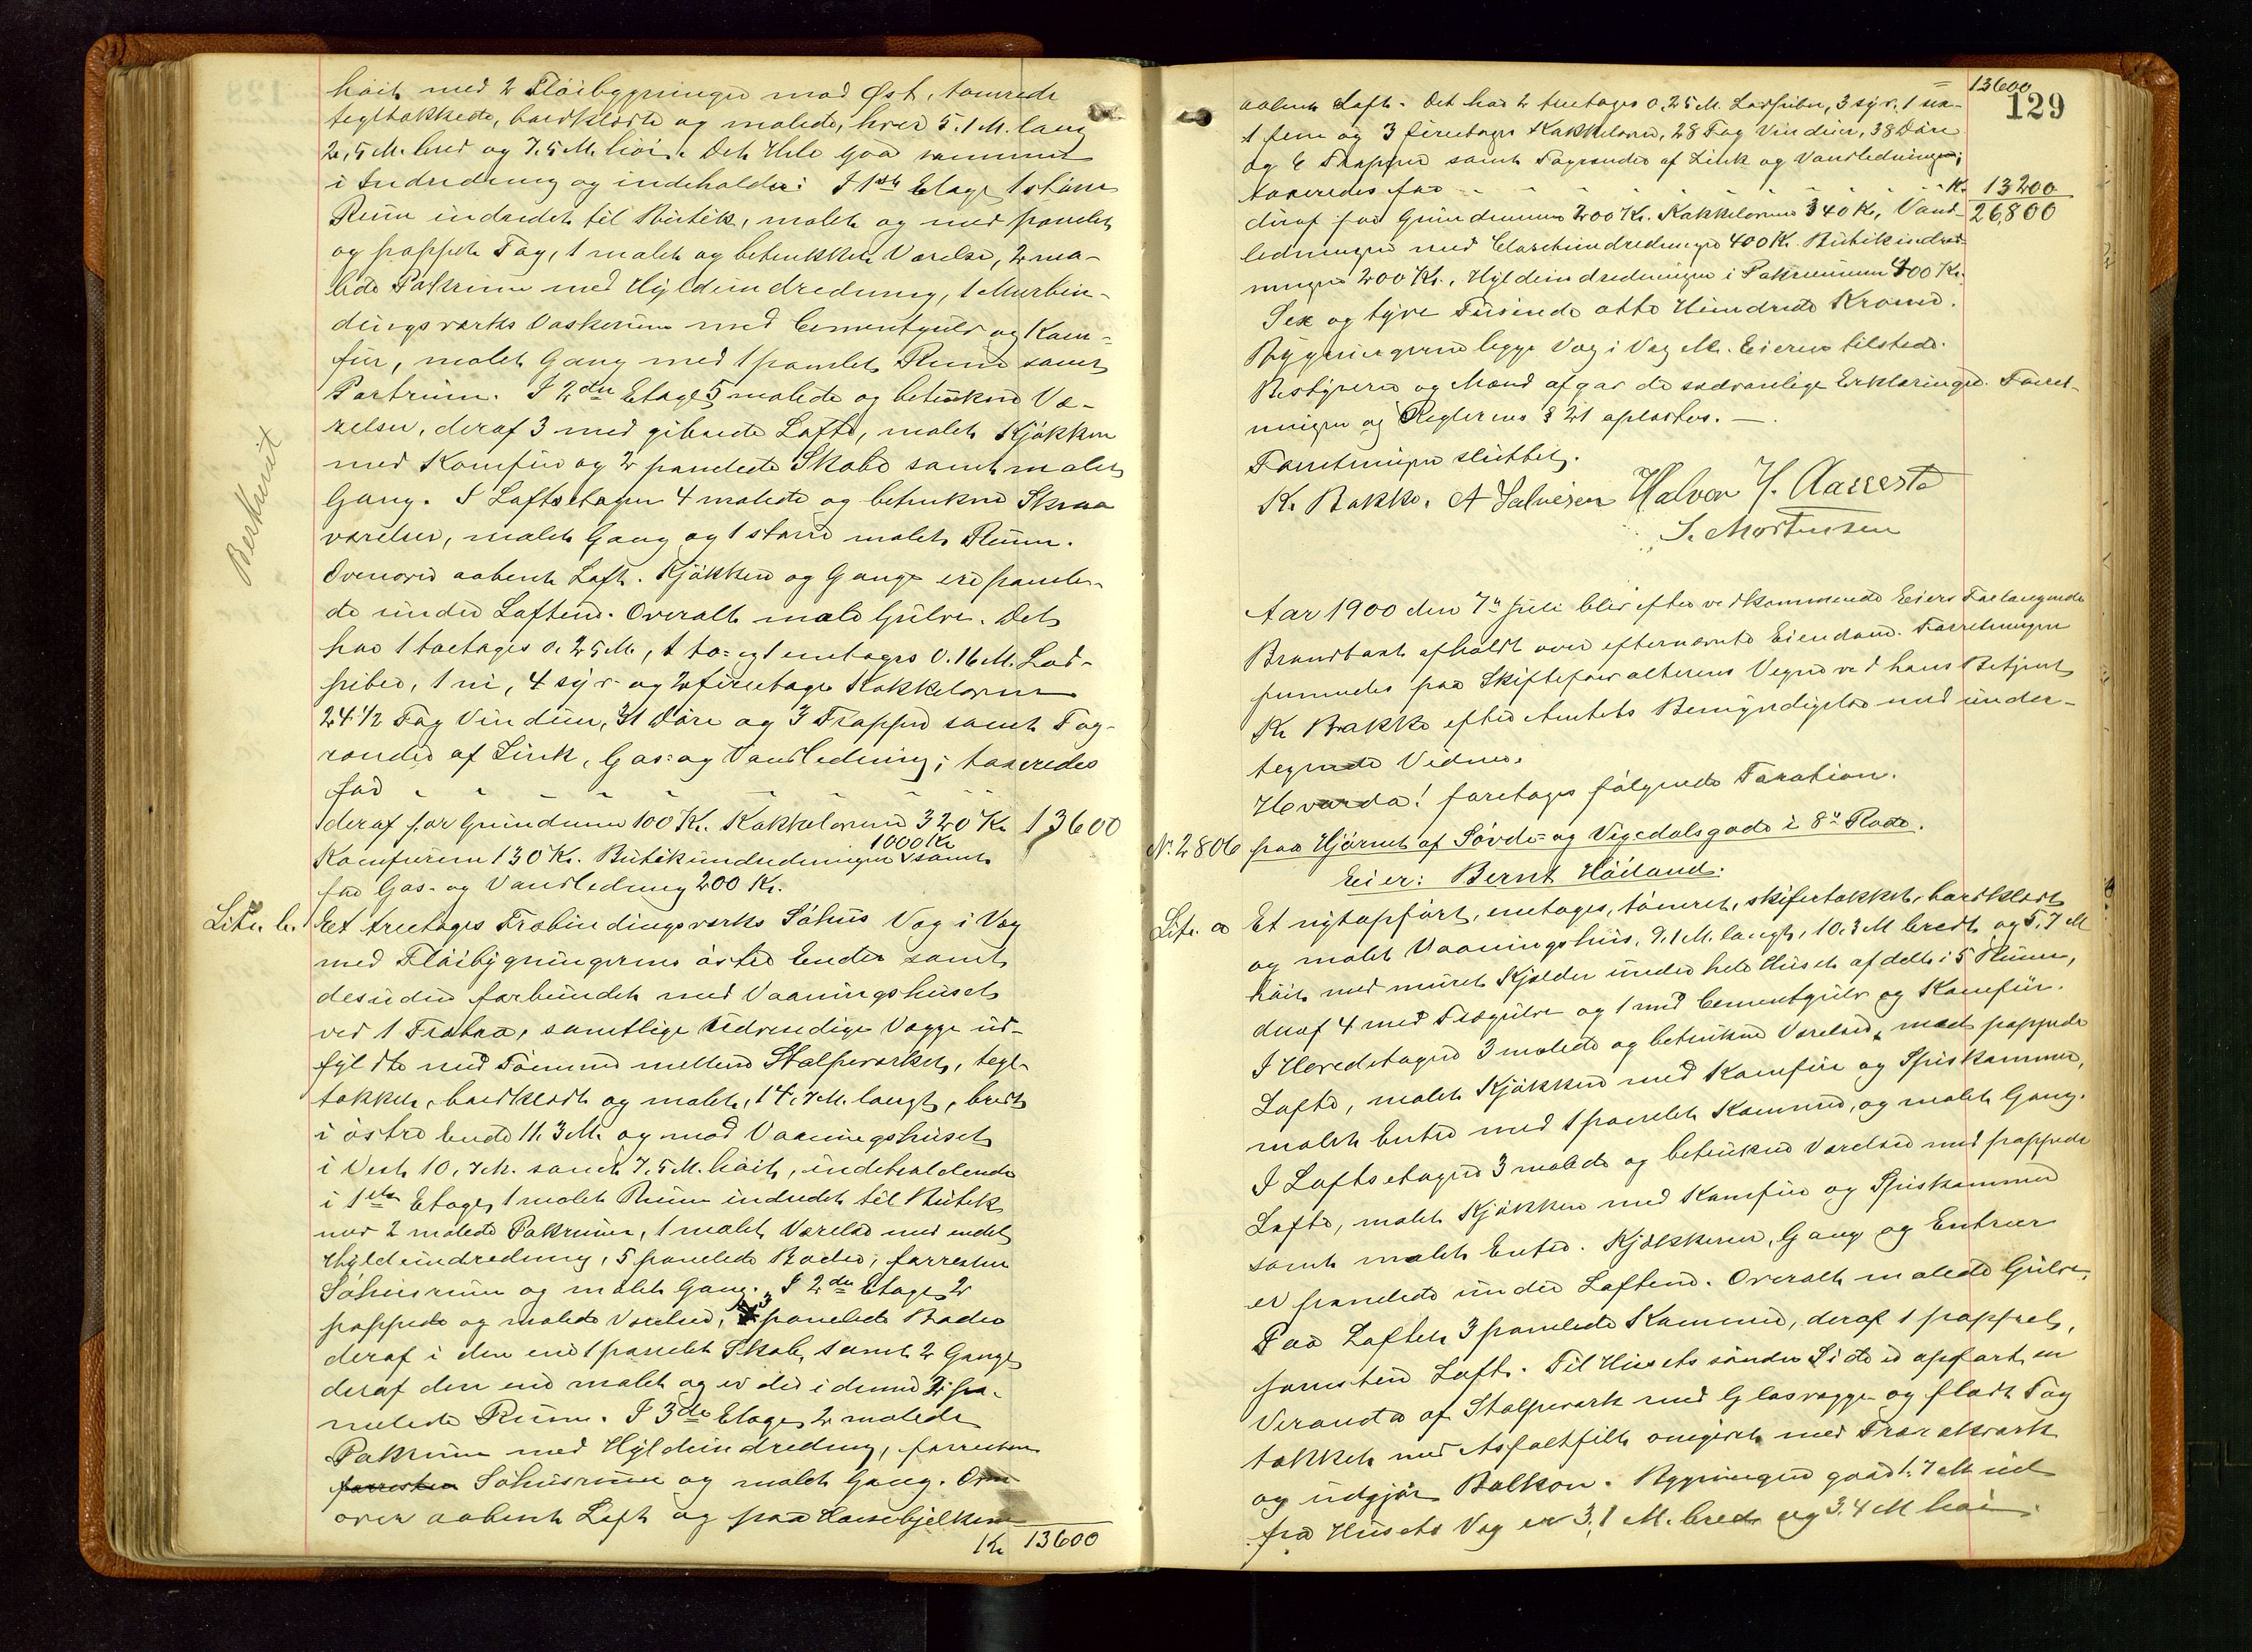 høit med 2 Fløibygninger mod Øst, tømrede
tegltækkede, bordklædte og malede, hver 5.1 M. lang
2,5 M. bred og 7.5 M. høi. Det Hele gaar sammen
i Indredning og indeholder: I 1ste Etage 1 større
Rum indredet til Butik, malet og med panelet
og pappet Tag, 1 malet og betrukket Værelse, 2 ma-
lede Pakrum med Hyldeindredning, 1 Murbin-
dingsværks Vaskerum med Cementgulv og Kom-
fur, malet Gang med 1 panelet Rum samt
Portrum. I 2den Etage 5 malede og betrukne Væ-
relser, deraf 3 med gibsede Lofte, malet Kjøkken
med Komfur og 2 panelede Skabe samt malet
Gang. I Loftsetagen 4 malede og betrukne Skraa
værelser, malet Gang og 1 større malet Rum.
Ovenover aabent Loft. Kjøkken og Gange ere panele-
de under Loftene. Overalt malede Gulve. Det
har 1 toetages 0.25 M., 1 to- og 1 enetages 0.16 M. Lod-
piber, 1 ni, 4 syv- og 2 fireetages Kakkelovne
24 1/2 Fag Vinduer, 31 Døre og 3 Trapper samt Tag-
render af Zink, Gas- og Vandledning; taxeredes
for
deraf for Grundmur 100 Kr. Kakkelovnene 320 Kr 13600
Komfurene 130 Kr. Butikindredningen 1000 Kr samt
for Gas- og Vandledning 200 Kr.
Litr. b. Et treetages Træbindingsværks Søhus Væg i Væg
med Fløibygningernes østre Ender samt
desuden forbundet med Vaaningshuset
ved 1 Træbro, samtlige udvendige Vægge ud-
fyldte med Tømmer mellem Stolpeværket, tegl-
tækket, bordklædt og malet, 14,7 M. langt, bredt
i østre Ende 11.3 M. og mod Vaaningshuset
i Vest 10,7 M. samt 7,5 M. høit, indeholdende
i 1ste Etage, 1 malet Rum indredet til Butik
2 malede Pakrum, 1 malet Værelse med
Hyldeindredning, 5 panelede Boder, forresten
Søhusrum og malet Gang. I 2den Etage 2
pappede og malede Værelser, 3 panelede Boder
deraf i den ene 1 panelet Skab, samt 2 Gange
deraf den ene malet og er der i denne 2 pa-
nelede Rum. I 3die Etage 2 malede
Pakrum med Hyldeindredning, forresten
forresten Søhusrum og malet Gang. Oven
over aabent Loft og paa Hanebjelkerne
Kr 13600
Beskrevet
13600
129
aabent Loft. Det har 2 treetages 0.25 M. Lodpiber, 3 syv, 1 sex-
1 fem og 3 fireetages Kakkelovne, 28 Fag Vinduer, 38 Døre
og 6 Trapper samt Tagrender af Zink og Vandledningen;
taxeredes for K. 13200
deraf for Grundmuren 200 Kr. Kakkelovnene 340 Kr, Vand- 26,800
ledningen med Closetindredningen 400 Kr. Butikindred-
ningen 200 Kr., Hyldeindredningen i Pakrummene 400 Kr.
Sex og tyve Tusinde otte Hundrede Kroner.
Bygningerne ligge Væg i Væg. Eieren tilstede.
Bestyreren og Mænd afgav de sædvanlige Erklæringer. Forret-
ningen og Reglernes § 21 oplæstes. —
Forretningen sluttet.
K. Bakke. A Salvesen Halvor H. Aarrestad
S. Mortensen
Aar 1900 den 7de Juli blev efter vedkommende Eiers Forlangende
Brandtaxt afholdt over efternævnte Eiendom. Forretningen
fremmedes paa Skifteforvalterens Vegne ved hans Betjent
K. Bakke efter Amtets Bemyndigelse med under-
tegnede Vidner.
Hvorda! foretages følgende Taxation.
No. 2806 paa Hjørnet af Søvde- og Vigedalsgade i 8de Rode.
Eier: Bernt Høiland.
Litr. a Et nyt opført, enetages, tømret, skifertækket, bordklædt
og malet Vaaningshus, 9.1 M. langt, 10.3 M bredt og 5.7 M
høit med muret Kjælder under hele Huset afdelt i 5 Rum,
deraf 4 med Trægulve og 1 med Cementgulv og Komfur.
I Hovedetagen 3 malede og betrukne Værelser med pappede
Lofte, malet Kjøkken med Komfur og Spiskammer,
malet Entre med 1 panelet Kammer, og malet Gang.
I Loftsetagen 3 malede og betrukne Værelser med pappede
Lofte, malet Kjøkken med Komfur og Spiskammer
samt malet Entre. Kjøkkener, Gang og Entreer
er panelede under Loftene. Overalt malede Gulve.
Paa Loftet 3 panelede Kammer, deraf 1 pappet,
forresten Loft. Til Husets søndre Side er opført en
Veranda af Stolpeværk med Glasvægge og fladt Tag
tækket med Asfaltfilt omgivet med Trærækværk
og udgjør Balkon. Bygningen gaar 1.7 M ud
fra Husets Væg er 3.1 M. bred og 3.4 M høi.